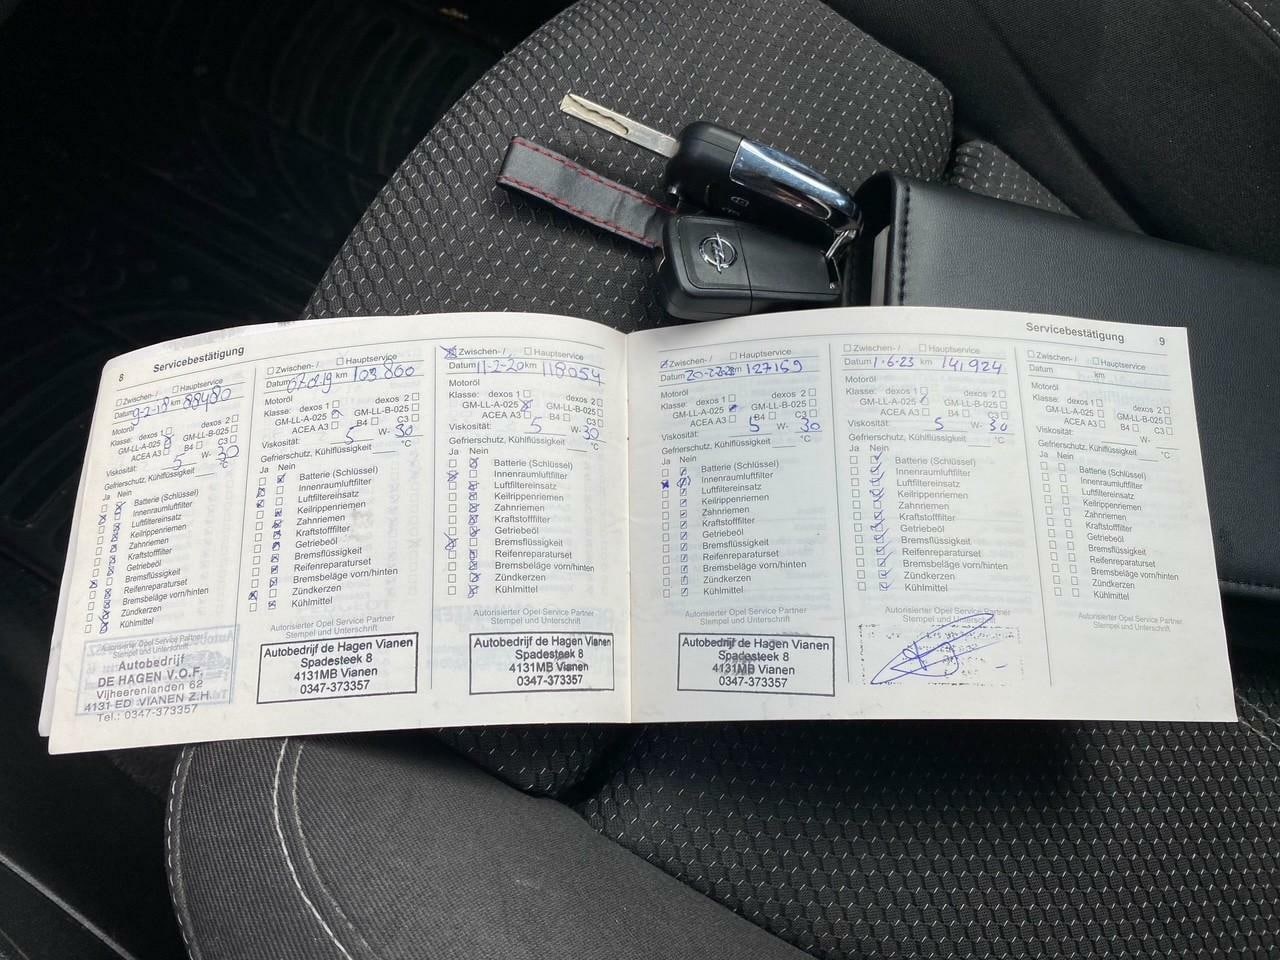 8 Servicebestätigung
☐ Zwischen- / ☐ Hauptservice
Datum 9-2-18 km 88480
Motoröl
Klasse: dexos 1 ☐ dexos 2 ☐
GM-LL-A-025 ☒ GM-LL-B-025 ☐
ACEA A3 ☐ B4 ☐ C3 ☐
Viskosität: 5 W- 30
Gefrierschutz, Kühlflüssigkeit °C
Ja Nein
Batterie (Schlüssel)
Innenraumluftfilter
Luftfiltereinsatz
Keilrippenriemen
Zahnriemen
Kraftstofffilter
Getriebeöl
Bremsflüssigkeit
Reifenreparaturset
Bremsbeläge vorn/hinten
Zündkerzen
Kühlmittel
Autorisierter Opel Service Partner
Stempel und Unterschrift
Autobedrijf
DE HAGEN V.O.F.
Vijheerenlanden 62
4131 ED VIANEN Z.H.
Tel.: 0347-373357
☐ Zwischen- / ☐ Hauptservice
Datum km 103 860
Motoröl
Klasse: dexos 1 ☐ dexos 2 ☐
GM-LL-A-025 ☒ GM-LL-B-025 ☐
ACEA A3 ☐ B4 ☐ C3 ☐
Viskosität: 5 W- 30
Gefrierschutz, Kühlflüssigkeit °C
Ja Nein
Batterie (Schlüssel)
Innenraumluftfilter
Luftfiltereinsatz
Keilrippenriemen
Zahnriemen
Kraftstofffilter
Getriebeöl
Bremsflüssigkeit
Reifenreparaturset
Bremsbeläge vorn/hinten
Zündkerzen
Kühlmittel
Autorisierter Opel Service Partner
Stempel und Unterschrift
Autobedrijf de Hagen Vianen
Spadesteek 8
4131MB Vianen
0347-373357
☒ Zwischen- / ☐ Hauptservice
Datum 11-2-20 km 118054
Motoröl
Klasse: dexos 1 ☐ dexos 2 ☐
GM-LL-A-025 ☒ GM-LL-B-025 ☐
ACEA A3 ☐ B4 ☐ C3 ☐
Viskosität: 5 W- 30
Gefrierschutz, Kühlflüssigkeit °C
Ja Nein
Batterie (Schlüssel)
Innenraumluftfilter
Luftfiltereinsatz
Keilrippenriemen
Zahnriemen
Kraftstofffilter
Getriebeöl
Bremsflüssigkeit
Reifenreparaturset
Bremsbeläge vorn/hinten
Zündkerzen
Kühlmittel
Autorisierter Opel Service Partner
Stempel und Unterschrift
Autobedrijf de Hagen Vianen
Spadesteek 8
4131MB Vianen
0347-373357
Servicebestätigung 9
☒ Zwischen- / ☐ Hauptservice
Datum km 127159
Motoröl
Klasse: dexos 1 ☐ dexos 2 ☐
GM-LL-A-025 ☒ GM-LL-B-025 ☐
ACEA A3 ☐ B4 ☐ C3 ☐
Viskosität: 5 W- 30
Gefrierschutz, Kühlflüssigkeit °C
Ja Nein
Batterie (Schlüssel)
Innenraumluftfilter
Luftfiltereinsatz
Keilrippenriemen
Zahnriemen
Kraftstofffilter
Getriebeöl
Bremsflüssigkeit
Reifenreparaturset
Bremsbeläge vorn/hinten
Zündkerzen
Kühlmittel
Autorisierter Opel Service Partner
Stempel und Unterschrift
Autobedrijf de Hagen Vianen
Spadesteek 8
4131MB Vianen
0347-373357
☐ Zwischen- / ☐ Hauptservice
Datum 1-6-23 km 141,924
Motoröl
Klasse: dexos 1 ☐ dexos 2 ☐
GM-LL-A-025 ☑ GM-LL-B-025 ☐
ACEA A3 ☐ B4 ☐ C3 ☐
Viskosität: 5 W- 30
Gefrierschutz, Kühlflüssigkeit °C
Ja Nein
Batterie (Schlüssel)
Innenraumluftfilter
Luftfiltereinsatz
Keilrippenriemen
Zahnriemen
Kraftstofffilter
Getriebeöl
Bremsflüssigkeit
Reifenreparaturset
Bremsbeläge vorn/hinten
Zündkerzen
Kühlmittel
Autorisierter Opel Service Partner
Stempel und Unterschrift
☐ Zwischen- / ☐ Hauptservice
Datum km
Motoröl
Klasse: dexos 1 ☐ dexos 2 ☐
GM-LL-A-025 ☐ GM-LL-B-025 ☐
ACEA A3 ☐ B4 ☐ C3 ☐
Viskosität: W-
Gefrierschutz, Kühlflüssigkeit °C
Ja Nein
Batterie (Schlüssel)
Innenraumluftfilter
Luftfiltereinsatz
Keilrippenriemen
Zahnriemen
Kraftstofffilter
Getriebeöl
Bremsflüssigkeit
Reifenreparaturset
Bremsbeläge vorn/hinten
Zündkerzen
Kühlmittel
Autorisierter Opel Service Partner
Stempel und Unterschrift